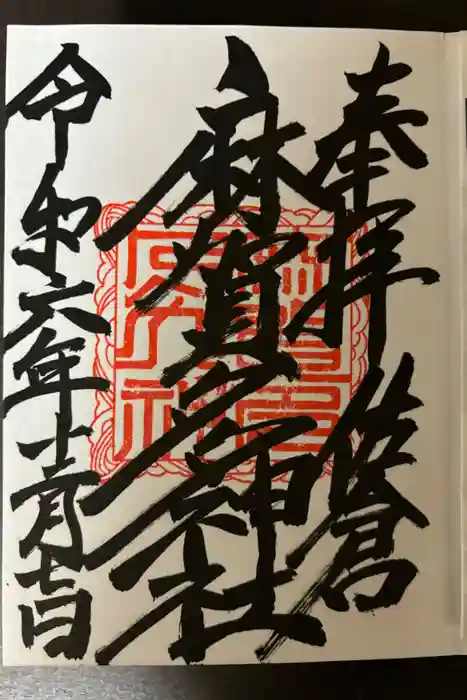 奉拝 佐倉
麻賀多神社
令和六年十一月吉日